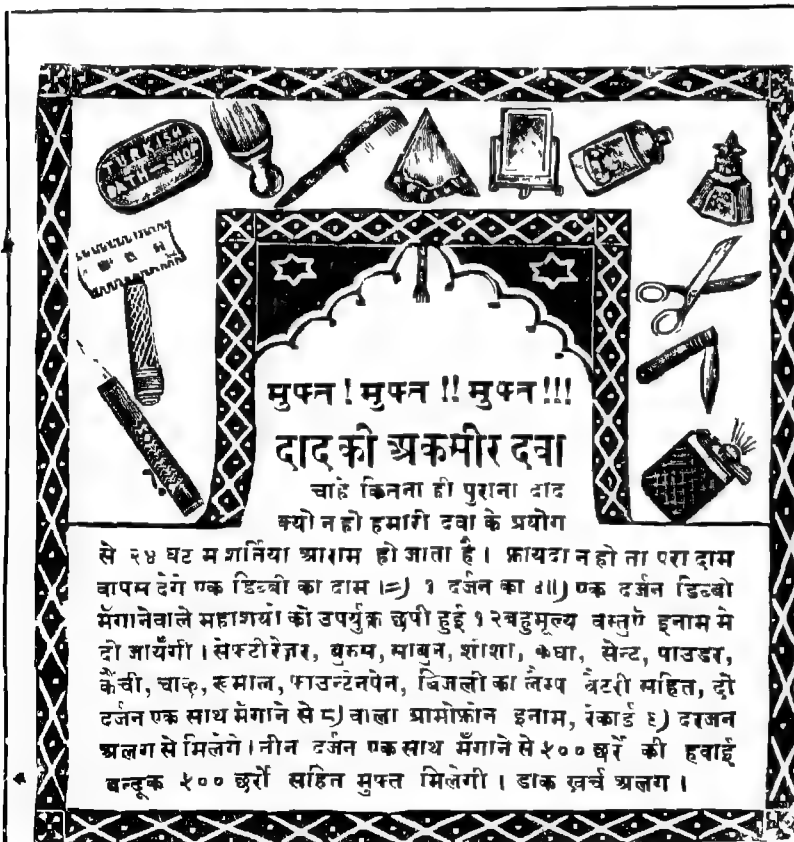 TURKISH
BATH SHOP
मुफ्त ! मुफ्त !! मुफ्त !!!
दाद की अकसीर दवा
चाहे कितना ही पुराना दाद
क्यों न हो हमारी दवा के प्रयोग
से २४ घंटे में शर्तिया आराम हो जाता है । फ़ायदा न हो तो पूरा दाम
वापस देंगे एक डिब्बी का दाम ।=) १ दर्जन का ४॥) एक दर्जन डिब्बी
मँगानेवाले महाशयों को उपर्युक्त छपी हुई १२ बहुमूल्य वस्तुएँ इनाम में
दी जायँगी । सेफ्टीरेज़र, बुरुस, साबुन, शीशा, कंघा, सेन्ट, पाउडर,
कैंची, चाकू, रूमाल, फाउन्टेनपेन, बिजली का लैम्प बैटरी सहित, दो
दर्जन एक साथ मँगाने से ८) वाला ग्रामोफ़ोन इनाम, रेकार्ड ६) दरजन
अलग से मिलेंगे । तीन दर्जन एक साथ मँगाने से ५०० छर्रे की हवाई
बन्दूक ५०० छर्रों सहित मुफ्त मिलेगी । डाक ख़र्च अलग ।